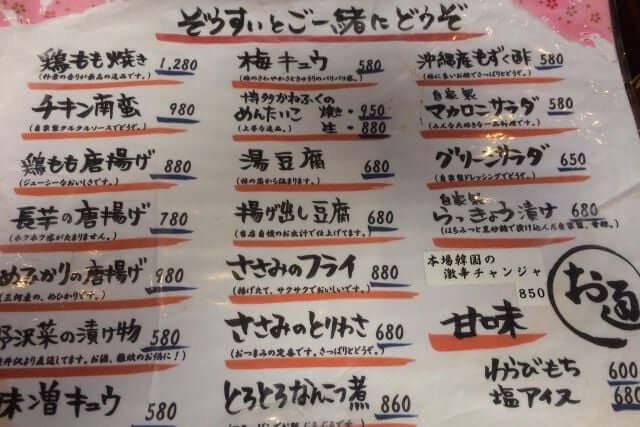 ぞうすいとご一緒にどうぞ
鶏もも焼き 1,280
チキン南蛮 980
(自家製タルタルソースでどうぞ。)
鶏もも唐揚げ 880
(ジューシーなおいしさです。)
長芋の唐揚げ 780
(ホクホク感がたまりません。)
めひかりの唐揚げ 980
(三河産の、めひかりです。)
野沢菜の漬け物 580
味噌キュウ 580
梅キュウ 580
(梅のさわやかさときゅうりのパリパリ感。)
博多かねふくの
めんたいこ 焼き・950
(上等な逸品。) 生・880
湯豆腐 680
(体の芯から温まります。)
揚げ出し豆腐 680
(当店自慢のお出汁で仕上げてます。)
ささみのフライ 880
(揚げたて、サクサクでおいしいです。)
ささみのとりわさ 680
(おつまみの定番です。さっぱりとどうぞ。)
とろとろなんこつ煮 860
沖縄産もずく酢 580
自家製
マカロニサラダ 580
(みんな大好きな一品料理です。)
グリーンサラダ 650
(自家製ドレッシングでどうぞ。)
自家製
らっきょう漬け 680
本場韓国の
激辛チャンジャ
850
甘味
わらびもち 600
塩アイス 680